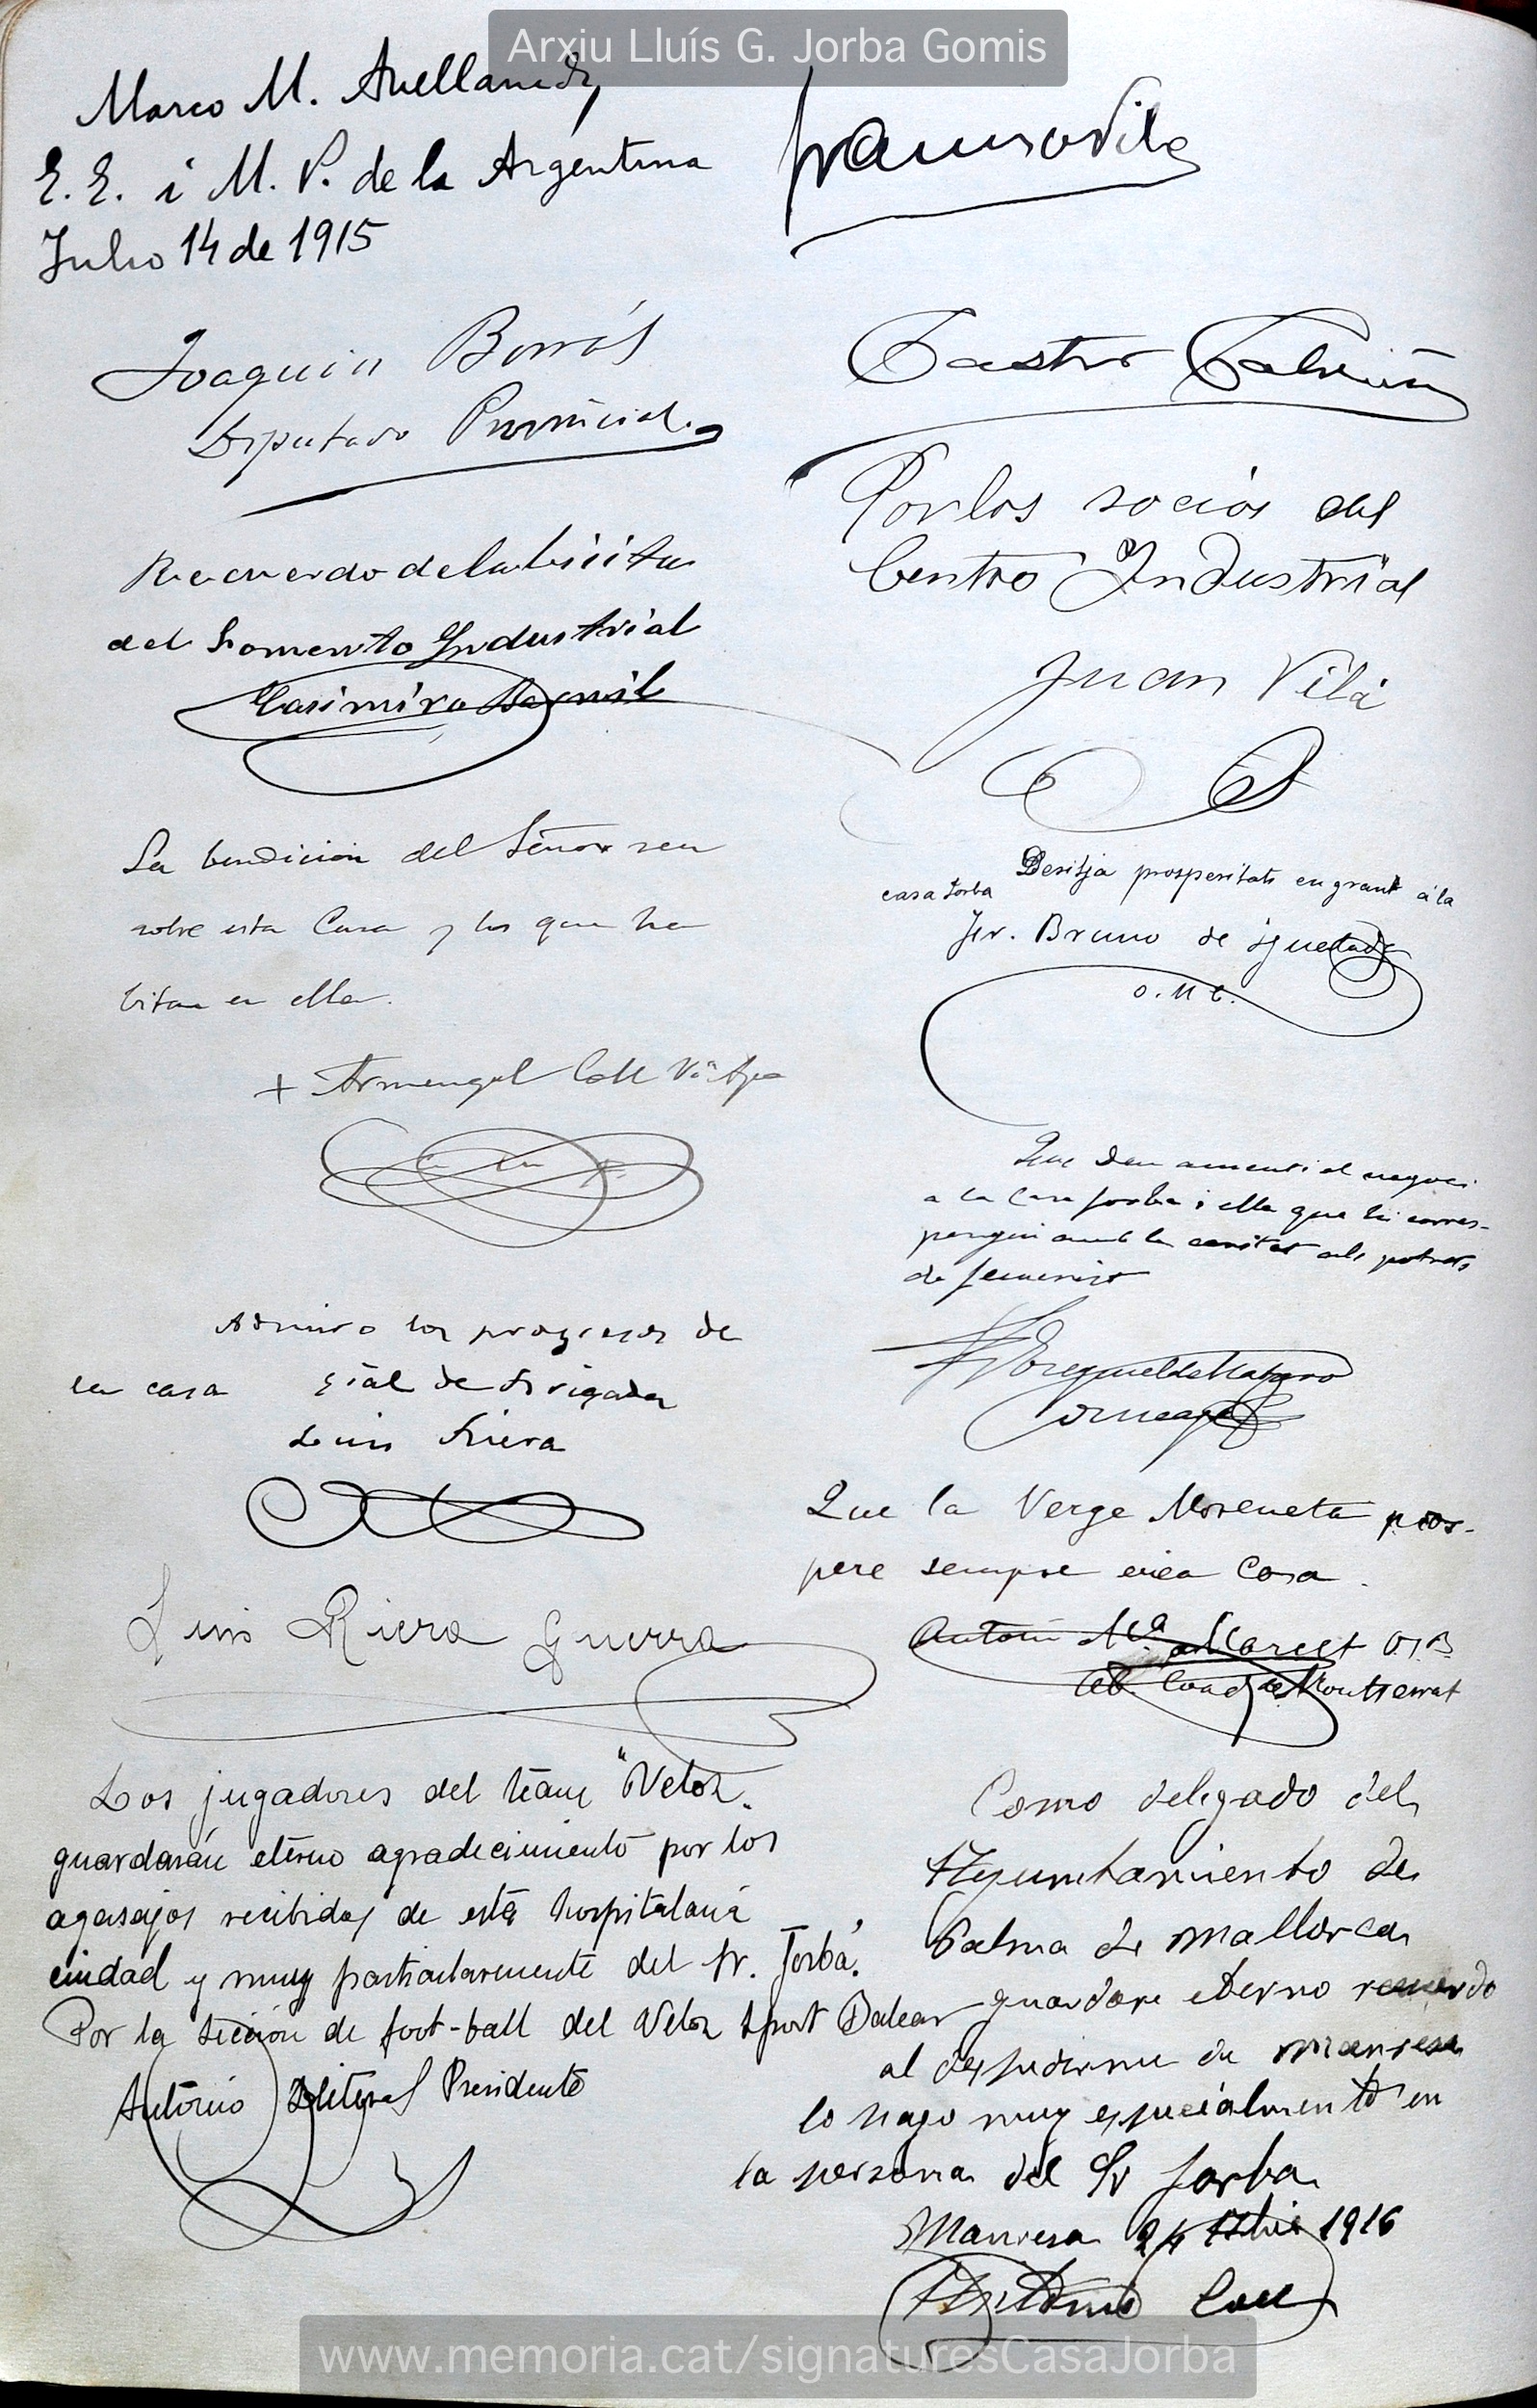 Arxiu Lluís G. Jorba Gomis
Marco M. Avellaneda
E. E. i M. P. de la Argentina
Julio 14 de 1915
Joaquin Borrás
Diputado Provincial.
Recuerdo de la bisita
del Fomento Industrial
Casimiro
La bendicion del Señor sea
sobre esta Casa y los que ha
bitan en ella.
+ Armengol Coll
Admiro los progresos de
la casa
Gral de Brigada
Luis Riera
Luis Riera Guerra
Los jugadores del team "Veloz"
guardarán eterno agradecimiento por los
agasajos recibidos de esta hospitalaria
ciudad y muy particularmente del Sr. Jorba.
Por la Sección de foot-ball del Veloz Sport Balear
Antonio Presidente
Vila
Castro
Por los socios del
Centro Industrial
Juan Vilá
Desitja prosperitats en grant á la
casa Jorba
Fr. Bruno de Igualada
O. M. C.
Que Deu aumenti el negoci
a la Casa Jorba i ella que hi corres-
pongui amb la caritat als pobrets
de
Ezequiel de Mataro
Que la Verge Moreneta pros-
pere sempre eixa Casa.
Antoni Mª Marcet O.S.B
Ab. Coad. de Montserrat
Como delegado del
Ayuntamiento de
Palma de Mallorca
guardare eterno recuerdo
al despedirme de Manresa
lo hago muy especialmente en
la persona del Sr Jorba
Manresa 24 1916
Antonio Coll
www.memoria.cat/signaturesCasaJorba